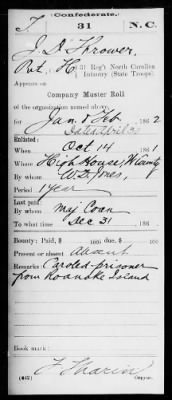 (Confederate.)
T 31 N.C.
J. D. Thrower
Pvt, Co. H, 31 Reg't North Carolina
Infantry (State Troops)
Appears on
Company Muster Roll
of the organization named above,
for Jan & Feb, 1862
Enlisted:
When Oct 14, 1861
Where High House, W. County
By whom W. D. Jones,
Period 1 year
Last paid:
By whom Maj Coan
To what time Dec 31, 186
Bounty: Paid, $ 100; due, $ 100
Present or absent Absent
Remarks: Paroled prisoner
from Roanoke Island
Book mark:
(642) Copyist.